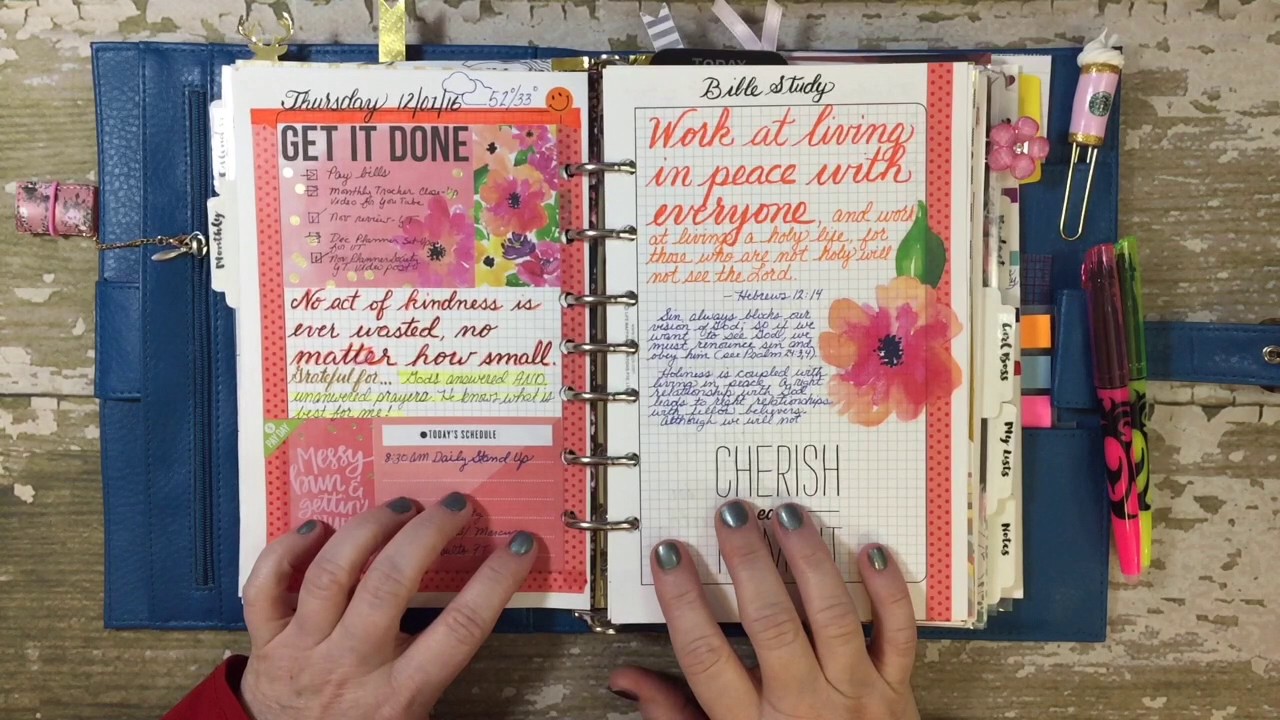 Thursday 12/01/16 52°/33°
GET IT DONE
Pay bills
Monthly Tracker Close-Up
Video for YouTube
Nov review-YT
Dec Planner Set-Up
for YT
Nov Planner Society
YT video post
No act of kindness is
ever wasted, no
matter how small.
Grateful for... Gods answered AND
unanswered prayers. He knows what is
best for me!
PAY DAY
Messy
bun &
gettin'
TODAY'S SCHEDULE
8:30 AM Daily Stand Up
Monthly
TODAY
Bible Study
Work at living
in peace with
everyone, and work
at living a holy life, for
those who are not holy will
not see the Lord.
-Hebrews 12:14
Sin always blocks our
vision of God; so if we
want to see God, we
must renounce sin and
obey him (see Psalm 24:3,4).
Holiness is coupled with
living in peace. A right
relationship with God
leads to right relationships
with fellow believers.
Although we will not
CHERISH
Girl Boss
My Lists
Notes